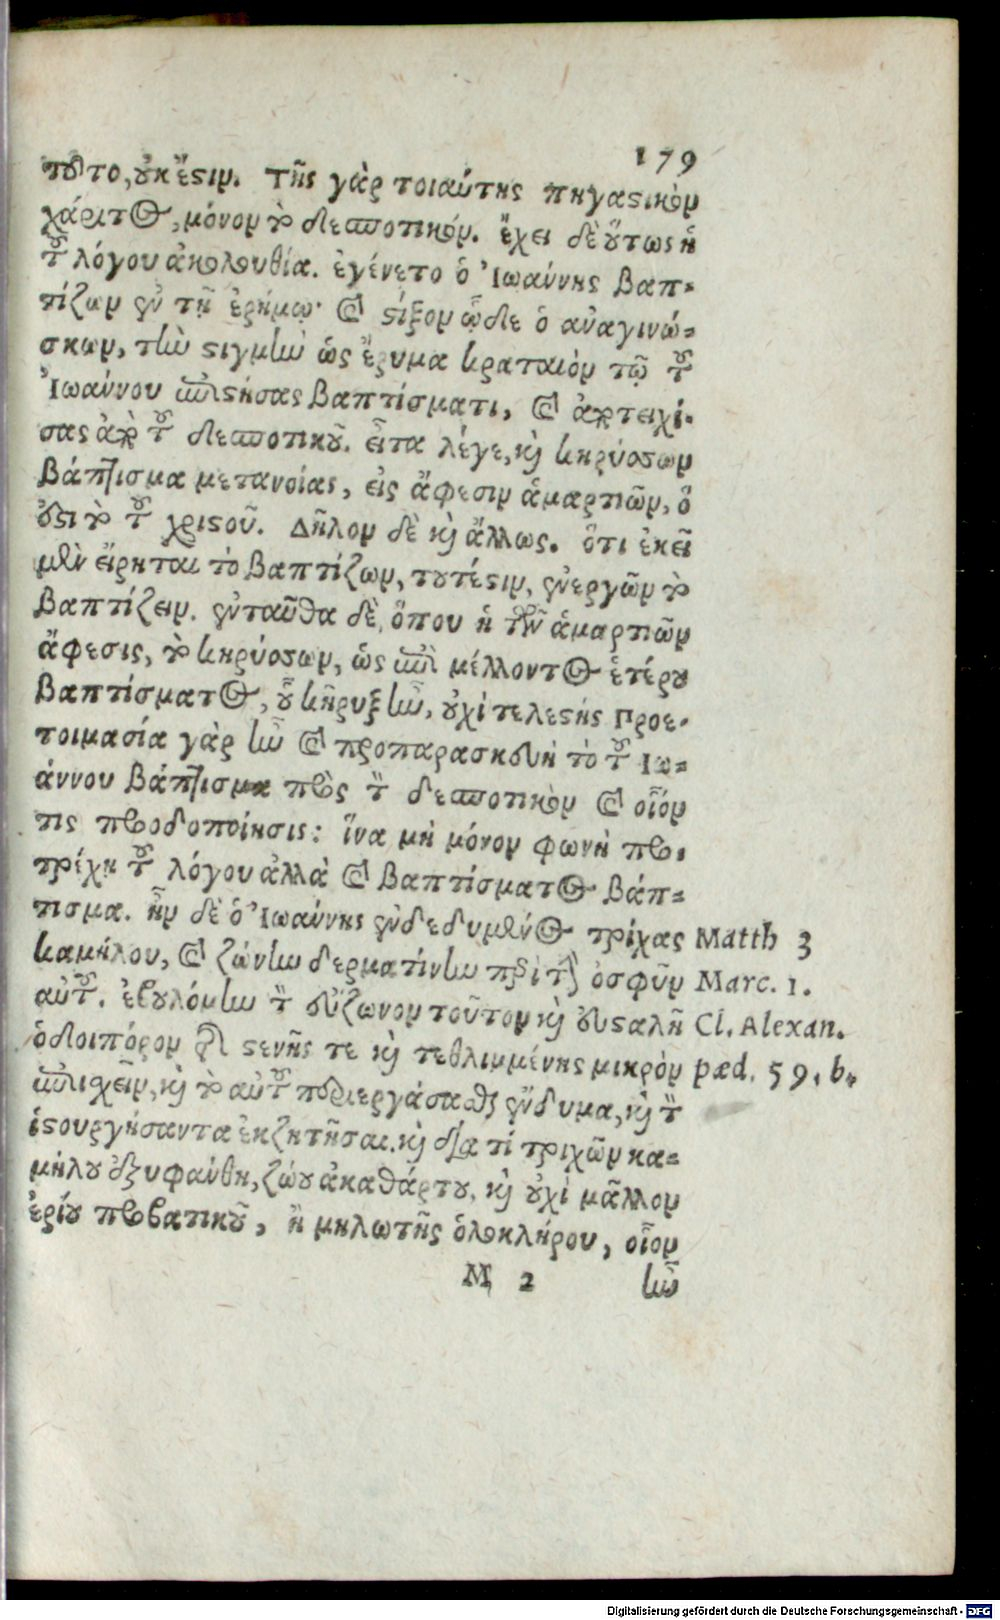 179
τοῦτο, οὐκ ἔστιν. Τῆς γὰρ τοιαύτης πηγαστικὸν
χάριτος, μόνον τὸ δεσποτικόν. ἔχει δὲ οὕτως ἡ
τοῦ λόγου ἀκολουθία. ἐγένετο ὁ Ἰωάννης βαπ-
τίζων ἐν τῇ ἐρήμῳ· καὶ στίξον ὧδε ὁ ἀναγινώ-
σκων, τὴν στιγμὴν ὡς ἔρυμα κραταιὸν τῷ τοῦ
Ἰωάννου ἐπιστήσας βαπτίσματι, καὶ ἀποτειχί-
σας ἀπὸ τοῦ δεσποτικοῦ. εἶτα λέγε, καὶ κηρύσσων
βάπτισμα μετανοίας, εἰς ἄφεσιν ἁμαρτιῶν, ὅ
ἐστι τὸ τοῦ χριστοῦ. Δῆλον δὲ καὶ ἄλλως. ὅτι ἐκεῖ
μὲν εἴρηται τὸ βαπτίζων, τουτέστιν, ἐνεργῶν τὸ
βαπτίζειν. ἐνταῦθα δὲ, ὅπου ἡ τῶν ἁμαρτιῶν
ἄφεσις, τὸ κηρύσσων, ὡς ἐπὶ μέλλοντος ἑτέρου
βαπτίσματος, οὗ κῆρυξ ἦν, οὐχὶ τελεστής Προε-
τοιμασία γὰρ ἦν καὶ προπαρασκευὴ τὸ τοῦ Ἰω-
άννου βάπτισμα πρὸς τὸν δεσποτικὸν καὶ οἷόν
τις προοδοποίησις: ἵνα μὴ μόνον φωνὴ προ-
τρέχῃ τοῦ λόγου ἀλλὰ καὶ βαπτίσματος βάπ-
τισμα. ἦν δὲ ὁ Ἰωάννης ἐνδεδυμένος τρίχας Matth 3
καμήλου, καὶ ζώνην δερματίνην περὶ τὴν ὀσφῦν Marc. 1.
αὐτοῦ. ἐβουλόμην τὸν εὔζωνον τοῦτον καὶ εὐσταλῆ Cl. Alexan.
ὁδοιπόρον ἐπὶ στενῆς τε καὶ τεθλιμμένης μικρὸν pæd. 59. b.
ἐπισχεῖν, καὶ τὸ αὐτοῦ περιεργάσασθαι ἔνδυμα, καὶ τὸν
ἱστουργήσαντα ἐκζητῆσαι. καὶ διὰ τί τριχῶν κα-
μήλου ἐξυφάνθη, ζώου ἀκαθάρτου, καὶ οὐχὶ μᾶλλον
ἐρίου προβατικοῦ, ἢ μηλωτῆς ὁλοκλήρου, οἷον
M 2 ἦν
Digitalisierung gefördert durch die Deutsche Forschungsgemeinschaft - DFG